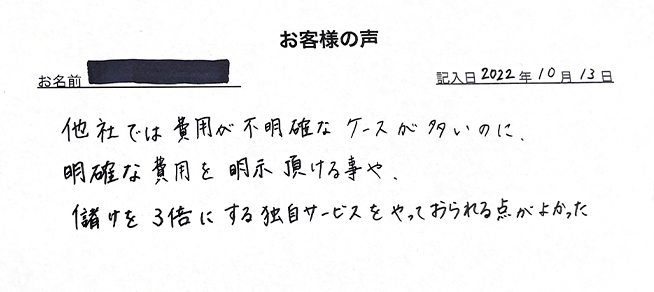 お客様の声
お名前
記入日 2022 年 10 月 13 日
他社では費用が不明確なケースが多いのに、
明確な費用を明示頂ける事や、
儲けを3倍にする独自サービスをやっておられる点がよかった